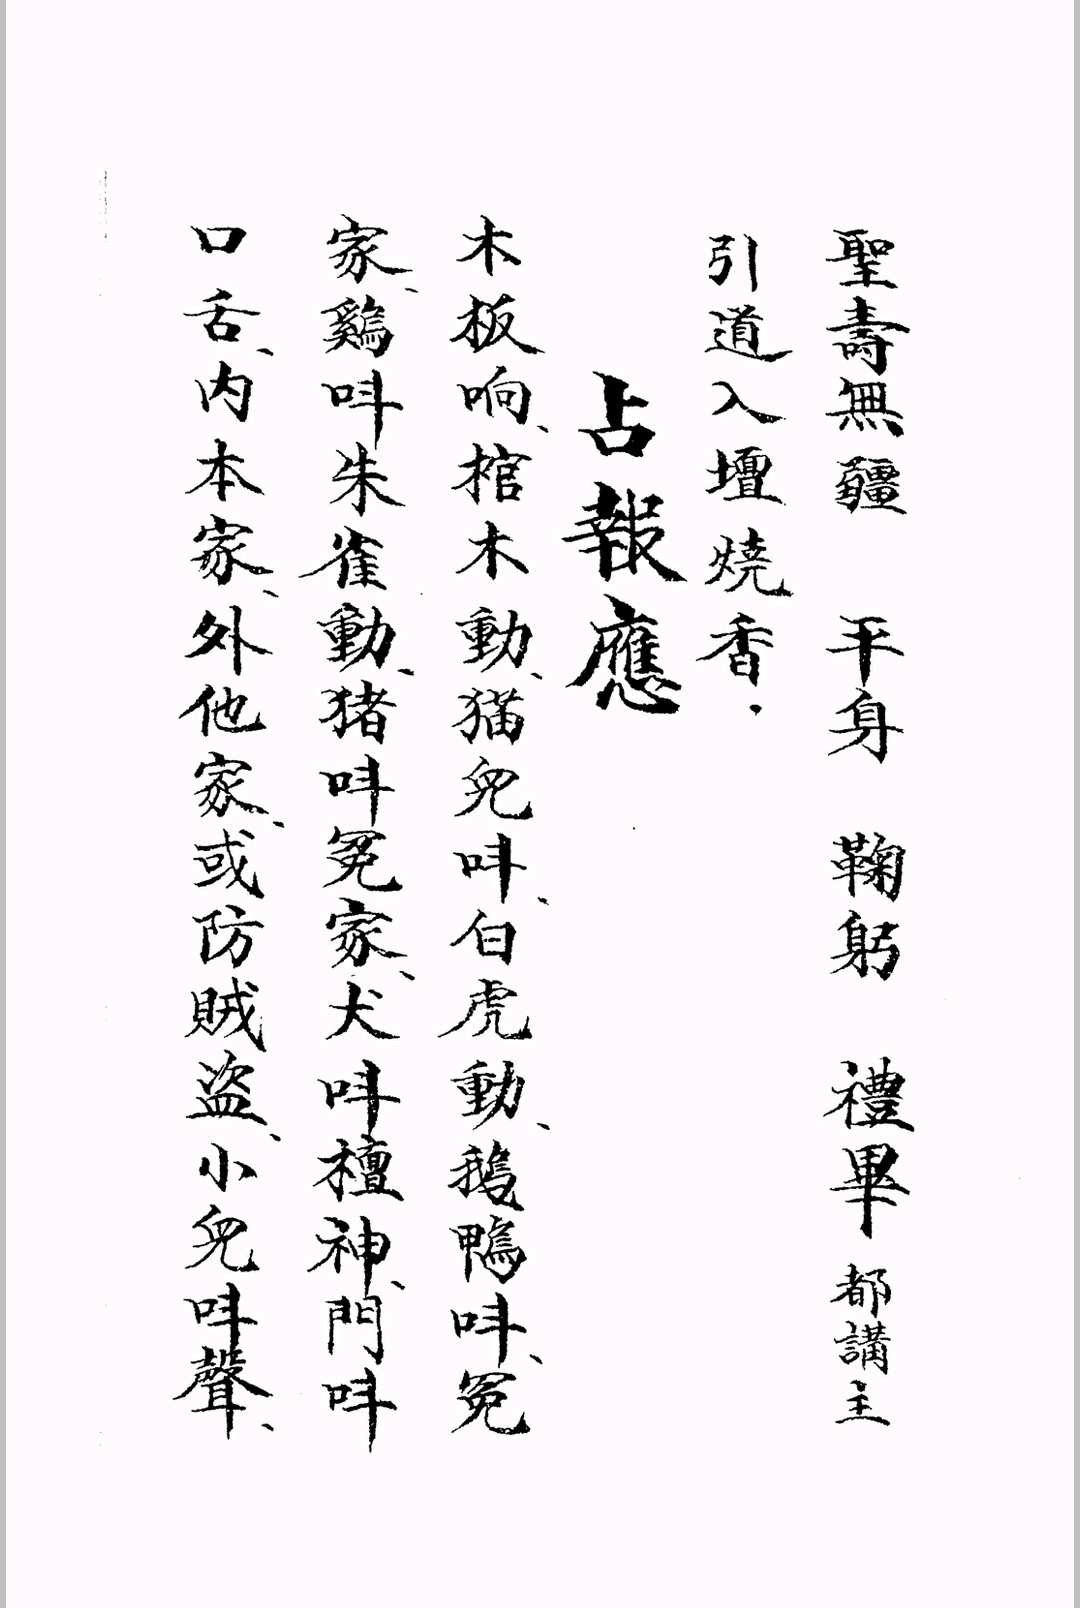 聖壽無疆　平身　鞠躬　禮畢　都講主
引道入壇燒香．
占報應
木板响、棺木動、猫兒呌、白虎動、鵝鴨呌、冤
家、鷄呌朱雀動、猪呌冤家、犬呌檀神、門呌
口舌、内本家、外他家、或防賊盗、小兒呌聲、